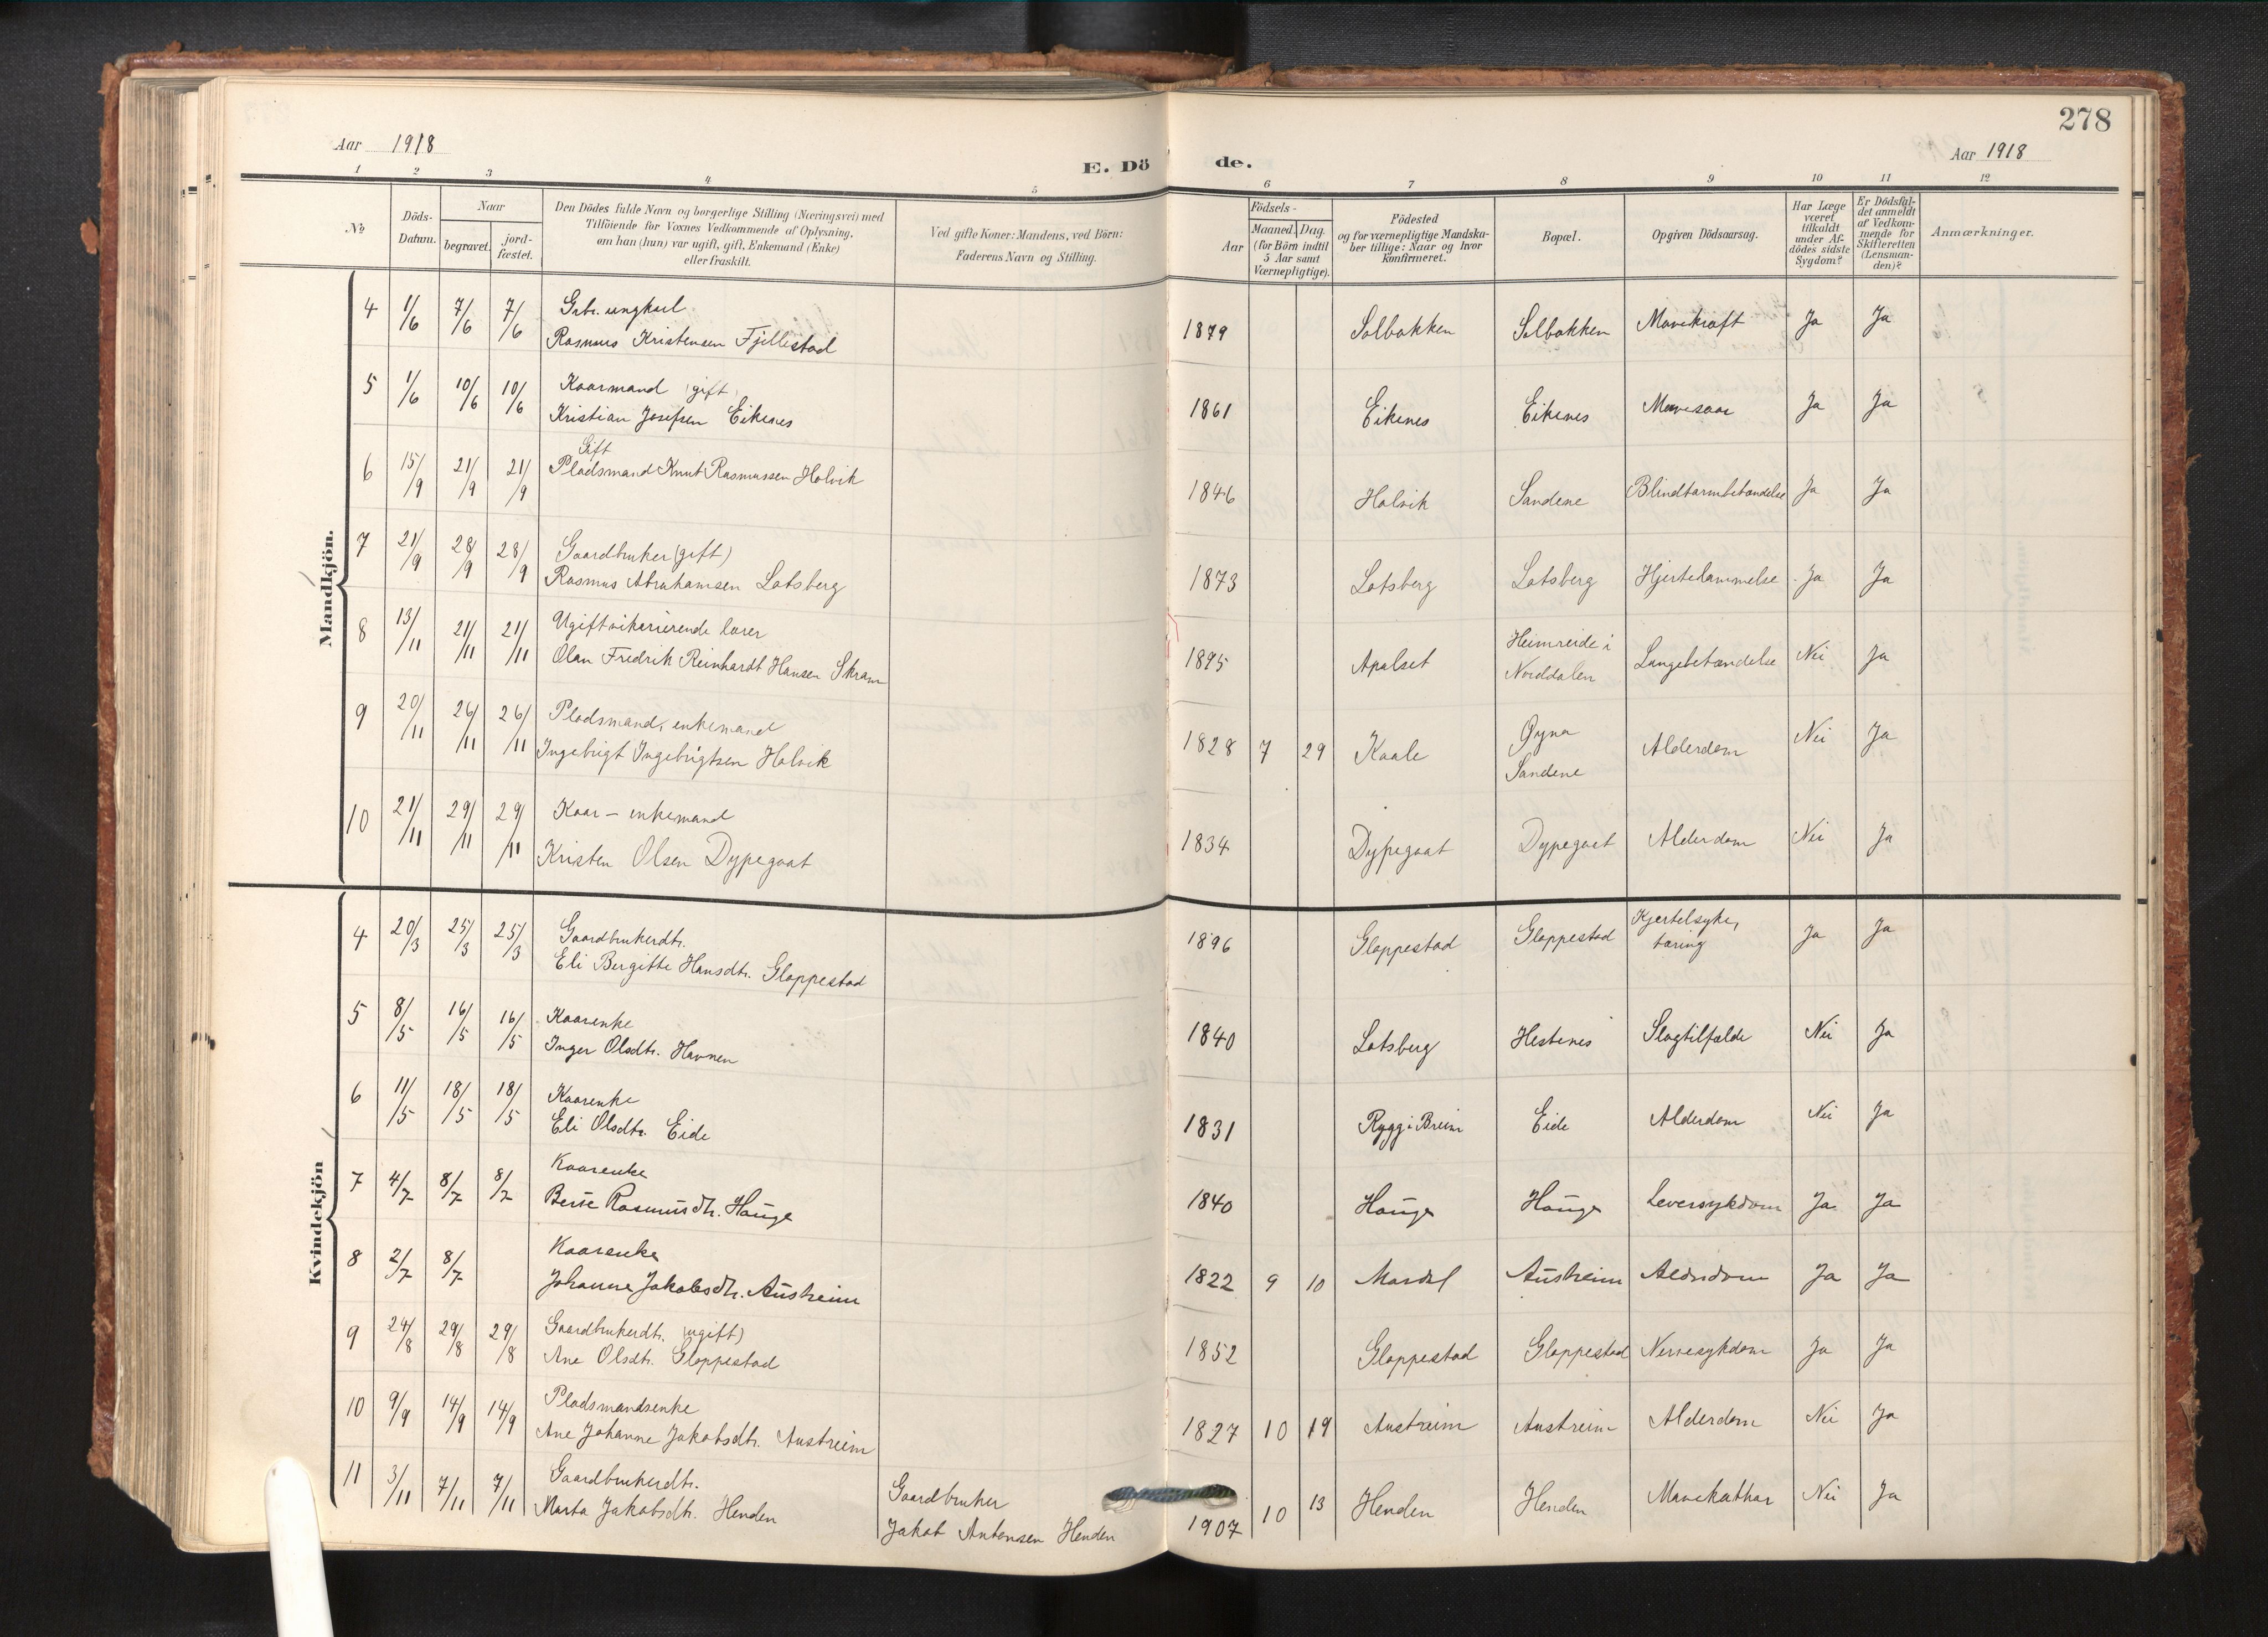 278
Aar 1918
E. Dö de.
Aar 1918
1 2 3 4 5 6 7 8 9 10 11 12
No
Döds-
Datum.
Naar
begravet.
jord-
fæstet.
Den Dödes fulde Navn og borgerlige Stilling (Næringsvei) med
Tilföiende for Voxnes Vedkommende af Oplysning,
om han (hun) var ugift, gift, Enkemand (Enke)
eller fraskilt.
Ved gifte Koner: Mandens, ved Börn:
Faderens Navn og Stilling.
Födsels-
Aar
Maaned. Dag.
(for Börn indtil
5 Aar samt
Værnepligtige).
Födested
og for værnepligtige Mandska-
ber tillige: Naar og hvor
Konfirmeret.
Bopæl.
Opgiven Dödsaarsag.
Har Læge
været
tilkaldt
under Af-
dödes sidste
Sygdom?
Er Dödsfal-
det anmeldt
af Vedkom-
mende for
Skifteretten
(Lensman-
den)?
Anmærkninger.
Mandkjön.
4 1/6 7/6 7/6 Grbr. ungkarl
Rasmus Kristensen Fjellestad 1879 Solbakken Solbakken Mavekræft Ja Ja
5 1/6 10/6 10/6 Kaarmand (gift)
Kristian Josefsen Eikenes 1861 Eikenes Eikenes Mavesaar Ja Ja
Gift
6 15/9 21/9 21/9 Pladsmand Knut Rasmussen Holvik 1846 Holvik Sandene Blindtarmbetændelse Ja Ja
7 21/9 28/9 28/9 Gaardbruker (gift)
Rasmus Abrahamsen Lotsberg 1873 Lotsberg Lotsberg Hjertelammelse Ja Ja
8 13/11 21/11 21/11 Ugift vikarierende lærer
Olan Fredrik Reinhardt Hansen Skram 1895 Apalset Heimreide i
Norddalen Lungebetændelse Nei Ja
9 20/11 26/11 26/11 Pladsmand, enkemand
Ingebrigt Ingebrigtsen Holvik 1828 7 29 Kaale Øyna
Sandene Alderdom Nei Ja
10 21/11 29/11 29/11 Kaar - enkemand
Kristen Olsen Dypegaat 1834 Dypegaat Dypegaat Alderdom Nei Ja
Kvindekjön
4 20/3 25/3 25/3 Gaardbrukerdtr.
Eli Bergitte Hansdtr. Gloppestad 1896 Gloppestad Gloppestad Kjertelsyke,
tæring Ja Ja
5 8/5 16/5 16/5 Kaarenke
Inger Olsdtr. Havnen 1840 Lotsberg Hestenes Slagtilfælde Nei Ja
6 11/5 18/5 18/5 Kaarenke
Eli Olsdtr. Eide 1831 Rygg i Breim Eide Alderdom Nei Ja
7 4/7 8/7 8/7 Kaarenke
Rasmusdtr. Hauge 1840 Hauge Hauge Leversykdom Ja Ja
8 2/7 8/7 Kaarenke
Johanne Jakobsdtr. Austreim 1822 9 10 Mardal Austreim Alderdom Ja Ja
9 24/8 29/8 29/8 Gaardbrukerdtr. (ugift)
Ane Olsdtr. Gloppestad 1852 Gloppestad Gloppestad Nervesykdom Ja Ja
10 9/9 14/9 14/9 Pladsmandsenke
Ane Johanne Jakobsdtr. Austreim 1827 10 19 Austreim Austreim Alderdom Nei Ja
11 3/11 7/11 7/11 Gaardbrukerdtr.
Marta Jakobsdtr. Henden Gaardbruker
Jakob Antonsen Henden 1907 10 13 Henden Henden Mavekathar Nei Ja